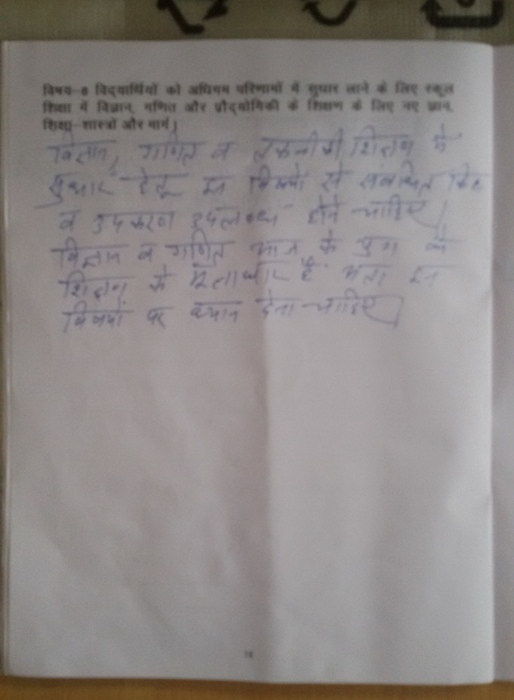 विषय-8 विद्यार्थियों को अधिगम परिणामों में सुधार लाने के लिए स्कूल
शिक्षा में विज्ञान, गणित और प्रौद्योगिकी के शिक्षण के लिए नए ज्ञान,
शिक्षा-शास्त्रों और मार्ग।
विज्ञान, गणित व तकनीकी शिक्षण में
सुधार हेतू इन विषयों से सबंधित किट
व उपकरण उपलब्ध होने चाहिए।
विज्ञान व गणित आज के युग के
शिक्षण के मूलाधार है अतः इन
विषयों पर ध्यान देना चाहिए।